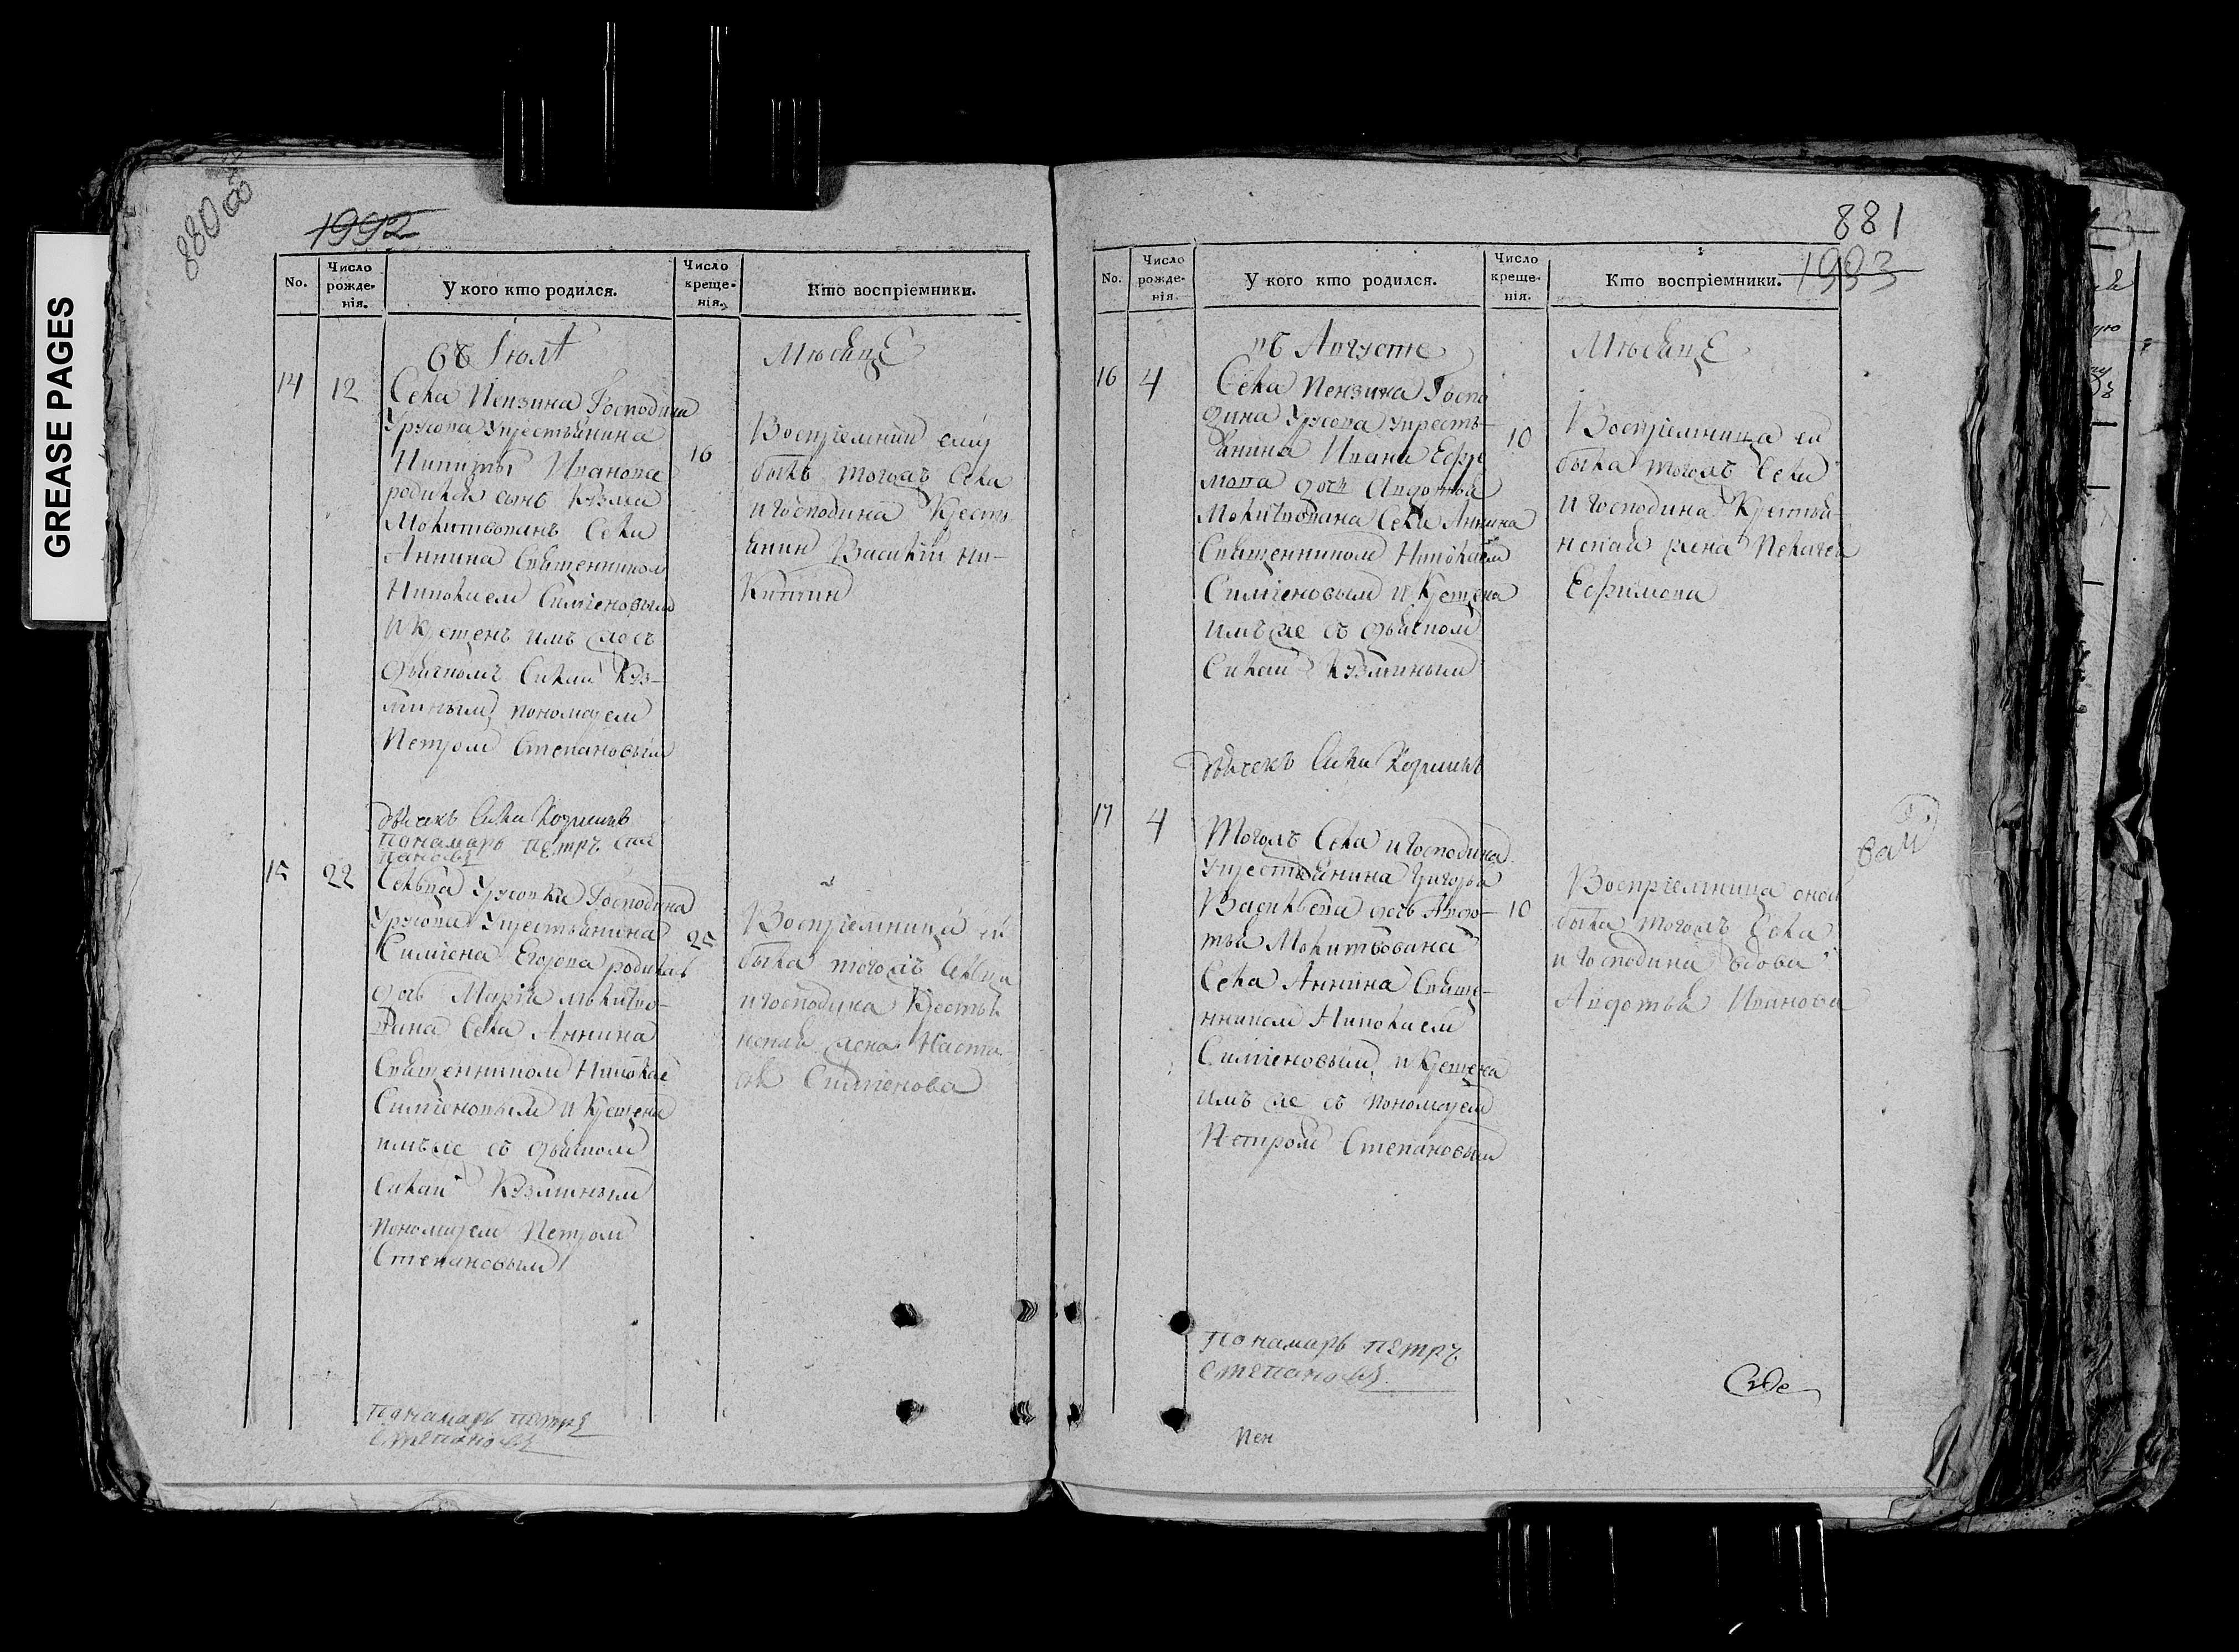 GREASE PAGES
880 об
1992
No.
Число рожде-нія.
У кого кто родился.
Число креще-нія.
Кто воспріемники.
въ Іюлѣ
Мѣсяцѣ
14
12
Села Пензина Господина
Урусова укрестьянина
Никиты Иванова
родился сынъ Кузма
Молитвованъ Села
Аннина Священником
Николаем Симіеновым
И Крещенъ имъ же съ
дьячкомъ Силай Куз-
миным, пономарем
Петром Степановым
16
Воспріемник ему
былъ тогожъ Села
и господина Кресть
янин Василій Ни-
китин
дьячекъ Сила Козминъ
понамарь петръ сте
пановъ
15
22
Сельца Урусовки Господина
Урусова Укрестьянина
Симіена Егорова родилась
дочь Марія молитво-
вана Села Аннина
Священником Николае
Симіеновым и Крещена
имъ же съ дьячком
Силай Кузминым
Пономарем Петром
Степановым
25
Воспріемница ей
была тогожъ Сельца
и господина Крестья
нская жена Наста
сья Симіенова
понамарь петръ
степановъ
881
1993
No.
Число рожде-нія.
У кого кто родился.
Число креще-нія.
Кто воспріемники.
въ Августе
Мѣсяцѣ
16
4
Села Пензина Госпо
дина Урусова укресть-
янина Ивана Ефре
мова дочь Авдотья
Молитвована Села Аннина
Священником Николаем
Симіеновым и Крещена
имъ же съ дьячком
Силай Кузминым
10
Воспріемница ей
была тогожъ Села
и господина Крестья-
нская жена Пелагея
Ефимова
дьячекъ Сила Козминъ
17
4
Тогожъ Села и господина
Укрестьянина Григорья
Васильева дочь Авдо-
тья Молитвована
Села Аннина Свяще-
нником Николаем
Симіеновым, и Крещена
имъ же съ пономарем
Петром Степановым
10
Воспріемница оной
была тогожъ Села
и господина вдова
Авдотья Иванова
понамарь петръ
степановъ
Пен